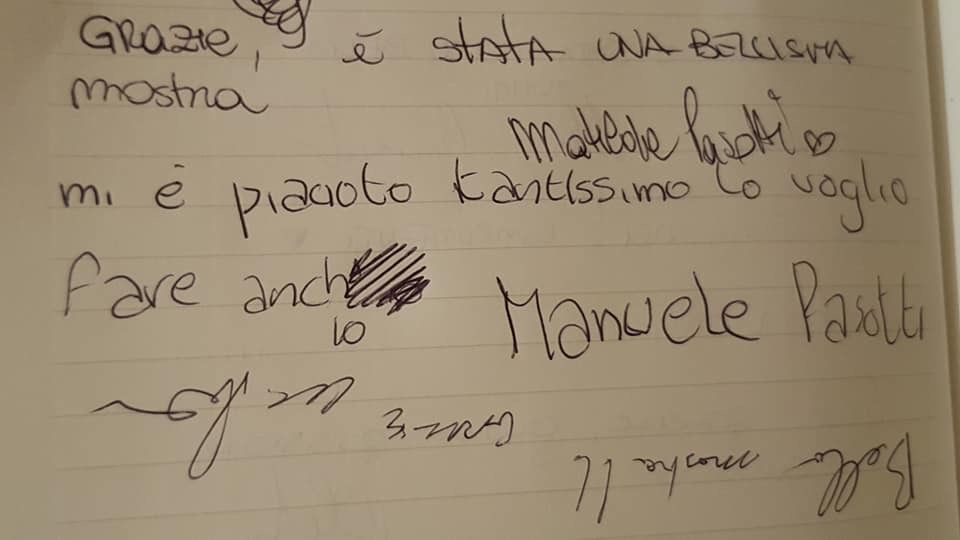 GRAZIE, è STATA UNA BELLISIMA
mostra
Matilde Pasotti
mi è piaciuto tantissimo lo voglio
fare anch
io
Manuele Pasotti
Bella mostra !!
Grazie